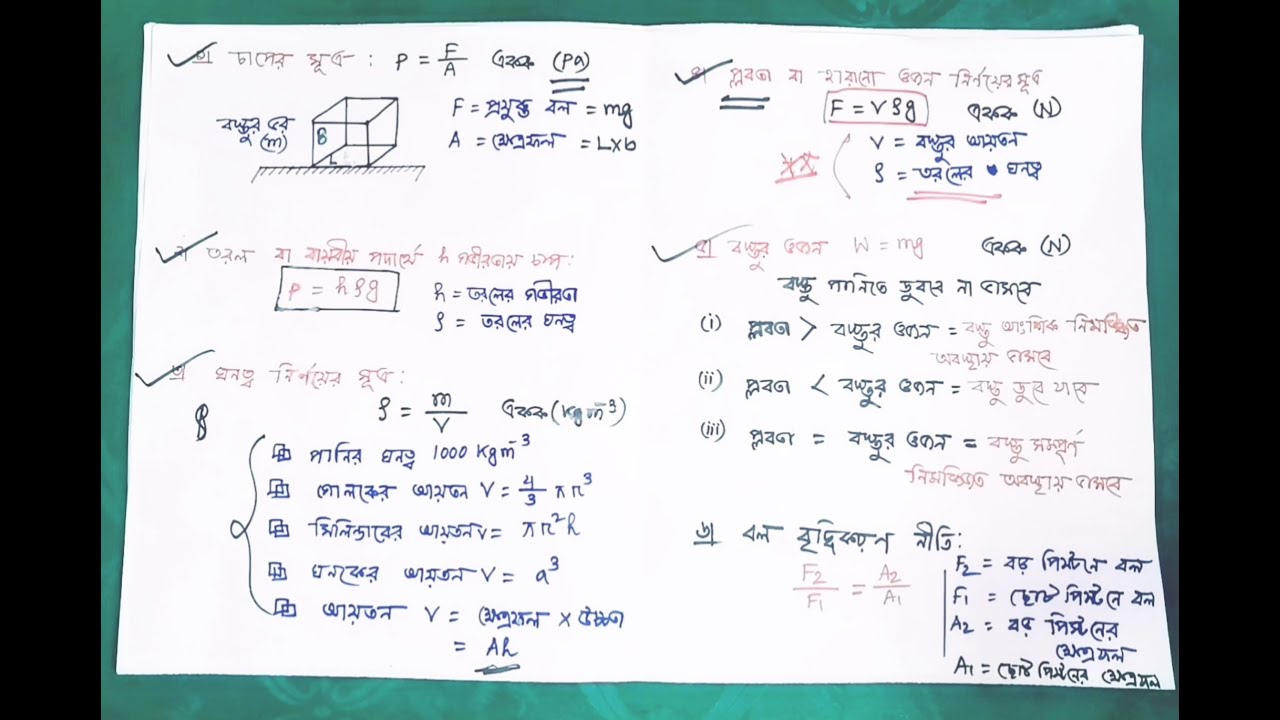 ১) চাপের সূত্র : P = F/A একক (Pa)
বস্তুর ভর (m)
B
L
F = প্রযুক্ত বল = mg
A = ক্ষেত্রফল = L×b
২) তরল বা বায়বীয় পদার্থে h গভীরতায় চাপ:
P = hρg
h = তরলের গভীরতা
ρ = তরলের ঘনত্ব
৩) ঘনত্ব নির্ণয়ের সূত্র:
ρ = m/V একক (kgm⁻³)
পানির ঘনত্ব 1000 Kgm⁻³
গোলকের আয়তন V = 4/3 πr³
সিলিন্ডারের আয়তন V = πr²h
ঘনকের আয়তন V = a³
আয়তন V = ক্ষেত্রফল × উচ্চতা
= Ah
৪) প্লবতা বা হারানো ওজন নির্ণয়ের সূত্র
F = Vρg একক (N)
V = বস্তুর আয়তন
ρ = তরলের ঘনত্ব
৫) বস্তুর ওজন W = mg একক (N)
বস্তু পানিতে ডুববে না ভাসবে
(i) প্লবতা > বস্তুর ওজন = বস্তু আংশিক নিমজ্জিত
অবস্থায় ভাসবে
(ii) প্লবতা < বস্তুর ওজন = বস্তু ডুবে যাবে
(iii) প্লবতা = বস্তুর ওজন = বস্তু সম্পূর্ণ
নিমজ্জিত অবস্থায় ভাসবে
৬) বল বৃদ্ধিকরণ নীতি:
F₂/F₁ = A₂/A₁
F₂ = বড় পিস্টনে বল
F₁ = ছোট পিস্টনে বল
A₂ = বড় পিস্টনের
ক্ষেত্রফল
A₁ = ছোট পিস্টনের ক্ষেত্রফল